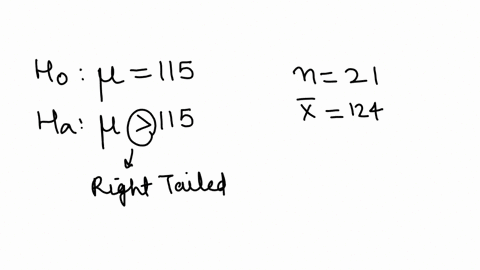 H₀: μ = 115
Ha: μ > 115
Right Tailed
n = 21
x̄ = 124